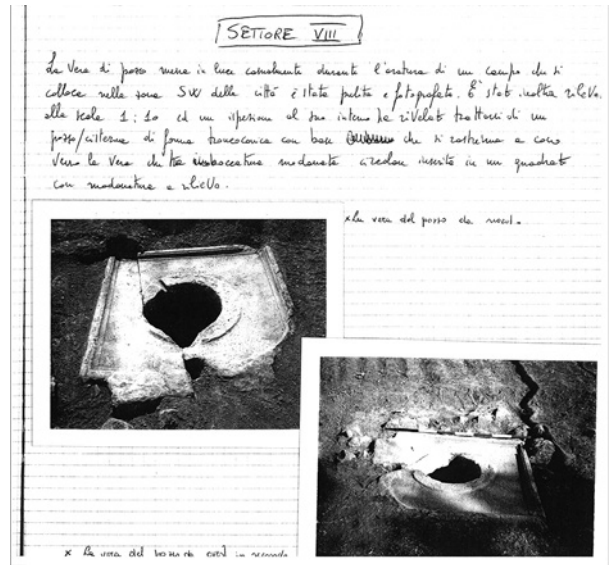 SETTORE VIII
La Vera di pozzo messa in luce casualmente durante l'aratura di un campo che si
colloca nella zona SW della città è stata pulita e fotografata. E' stata inoltre rileva
alla scala 1:10 ed un ispezione al suo interno ha rivelato trattarsi di un
pozzo/cisterna di forma troncoconica con base che si rastrema a cono
verso la Vera che ha imboccatura modanata circolare inserita in un quadrato
con modanatura a rilievo.
x La vera del pozzo da nord.
x La vera del pozzo da ovest in secondo